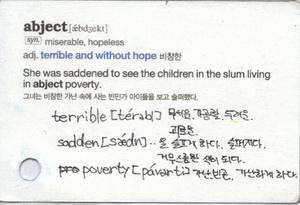 abject[ǽbdʒekt]
syn. miserable, hopeless
adj. terrible and without hope 비참한
She was saddened to see the children in the slum living
in abject poverty.
그녀는 비참한 가난 속에 사는 빈민가 아이들을 보고 슬퍼했다.
terrible [térəbl] 무서운, 가공할, 두려운,
괴로운
sadden [sǽdn].. 을 슬프게 하다. 슬퍼지다.
거무스름한 색이 되다.
poverty [pávərti] 가난, 빈곤, 가난하게 하다.